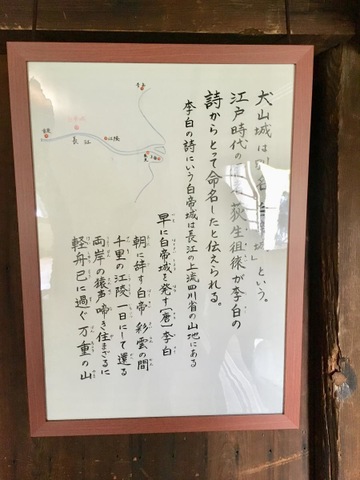 犬山城は別名「白帝城」という。
江戸時代の荻生徂徠が李白の
詩からとって命名したと伝えられる。
李白の詩にいう白帝城は長江の上流四川省の山地にある
早に白帝城を発す〔唐〕李白
朝に辞す白帝彩雲の間
千里の江陵一日にして還る
両岸の猿声啼き住まざるに
軽舟已に過ぐ万重の山
長江